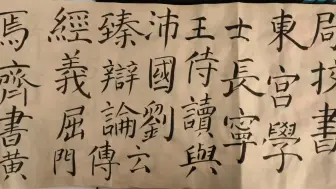 局校書
東宮學
士長寧
王侍讀與
沛國劉云
臻辯論傳
經義屈門
焉齊書黃